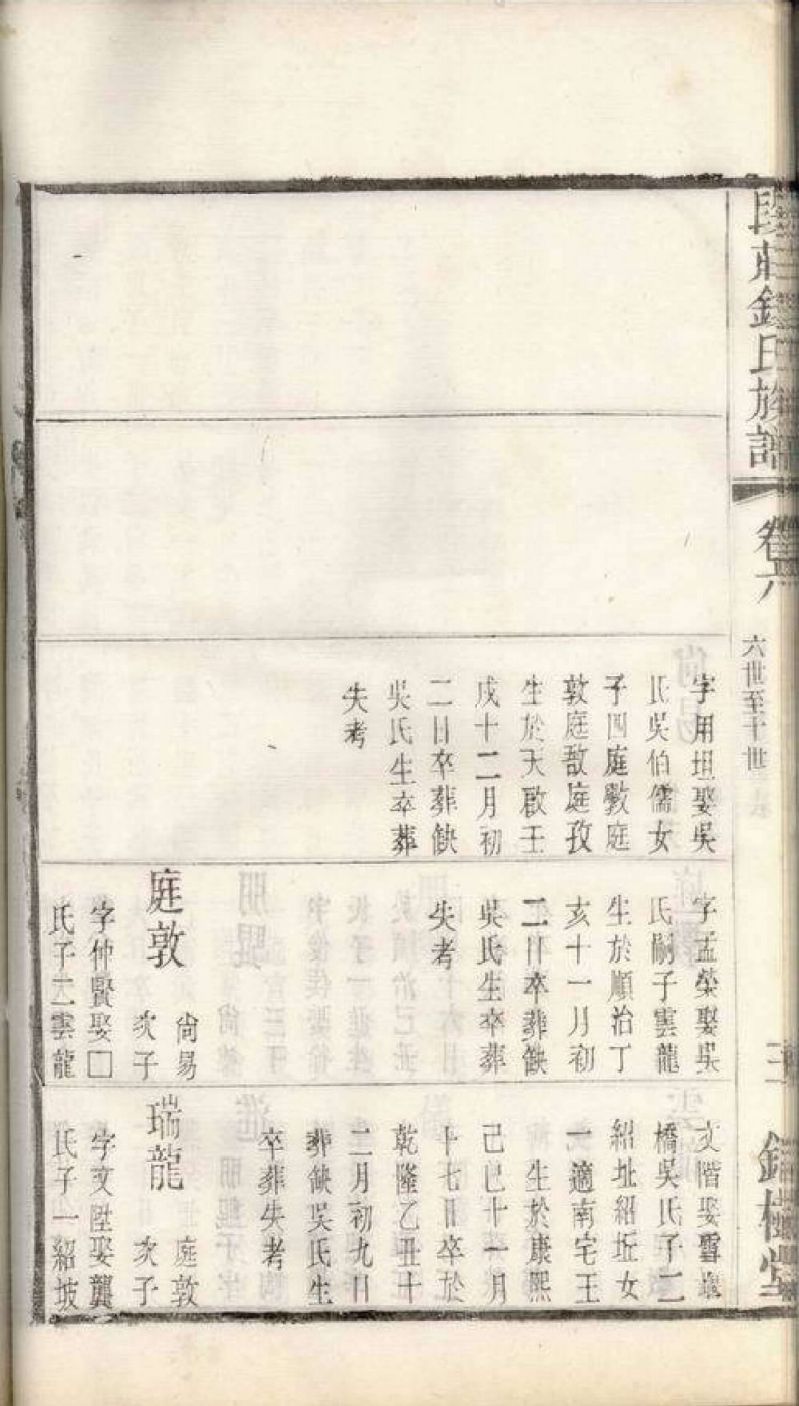 段莊錢氏族譜
卷六
六世至十世
三
錢樓堂
字用坦娶吳
氏吳伯儒女
子四庭斆庭
敦庭敔庭孜
生於天啟壬
戌十二月初
二日卒葬缺
吳氏生卒葬
失考
字孟榮娶吳
氏嗣子雲龍
生於順治丁
亥十一月初
二日卒葬缺
吳氏生卒葬
失考
庭敦
尙易
次子
字仲賢娶□
氏子二雲龍
文階娶雪堰
橋吳氏子二
紹址紹坵女
一適南宅王
生於康熙
己巳十一月
十七日卒於
乾隆乙丑十
二月初九日
葬缺吳氏生
卒葬失考
瑞龍
庭敦
次子
字文陞娶龔
氏子一紹坡